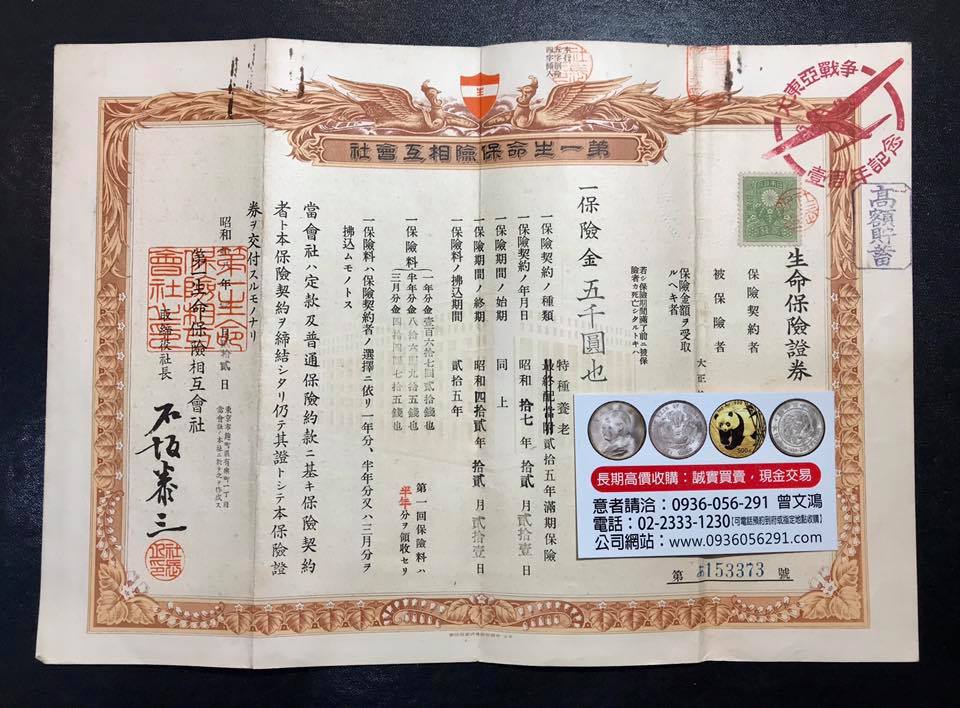 本行五字削除四字挿入
大東亞戰争
壹周年記念
高額貯蓄
第一生命保險相互會社
生命保險證券
保險契約者
被保險者
大正
保險金額ヲ受取ルヘキ者
若シ保險期間滿了前ニ被保險者カ死亡シタルトキハ
一保險金五千圓也
一保險契約ノ種類 特種養老 最終配當附貳拾五年滿期保險
一保險契約ノ年月日 昭和拾七年拾貳月貳拾壹日
一保險期間ノ始期 同上
一保險期間ノ終期 昭和四拾貳年拾貳月貳拾壹日
一保險料ノ拂込期間 貳拾五年
一保險料
一年分金壹百六拾七圓貳拾錢也
半年分金八拾六圓九拾五錢也
三月分金四拾四圓七拾五錢也
第一回保險料ハ
半年分ヲ領收セリ
一保險料ハ保險契約者ノ選擇ニ依リ一年分、半年分又ハ三月分ヲ
拂込ムモノトス
當會社ハ定款及普通保險約款ニ基キ保險契約
者ト本保險契約ヲ締結シタリ仍テ其證トシテ本保險證
券ヲ交付スルモノナリ
昭和 年 月 拾貳日
東京市麹町區有樂町一丁目
當會社ノ本社ニ於テ之ヲ作成ス
第一生命保險相互會社
取締役社長
石坂泰三
第一生命保險相互會社之印
社長之印
第 153373 號
長期高價收購：誠實買賣，現金交易
意者請洽：0936-056-291 曾文鴻
電話：02-2333-1230【可電話預約到府或指定地點收購】
公司網站：www.0936056291.com